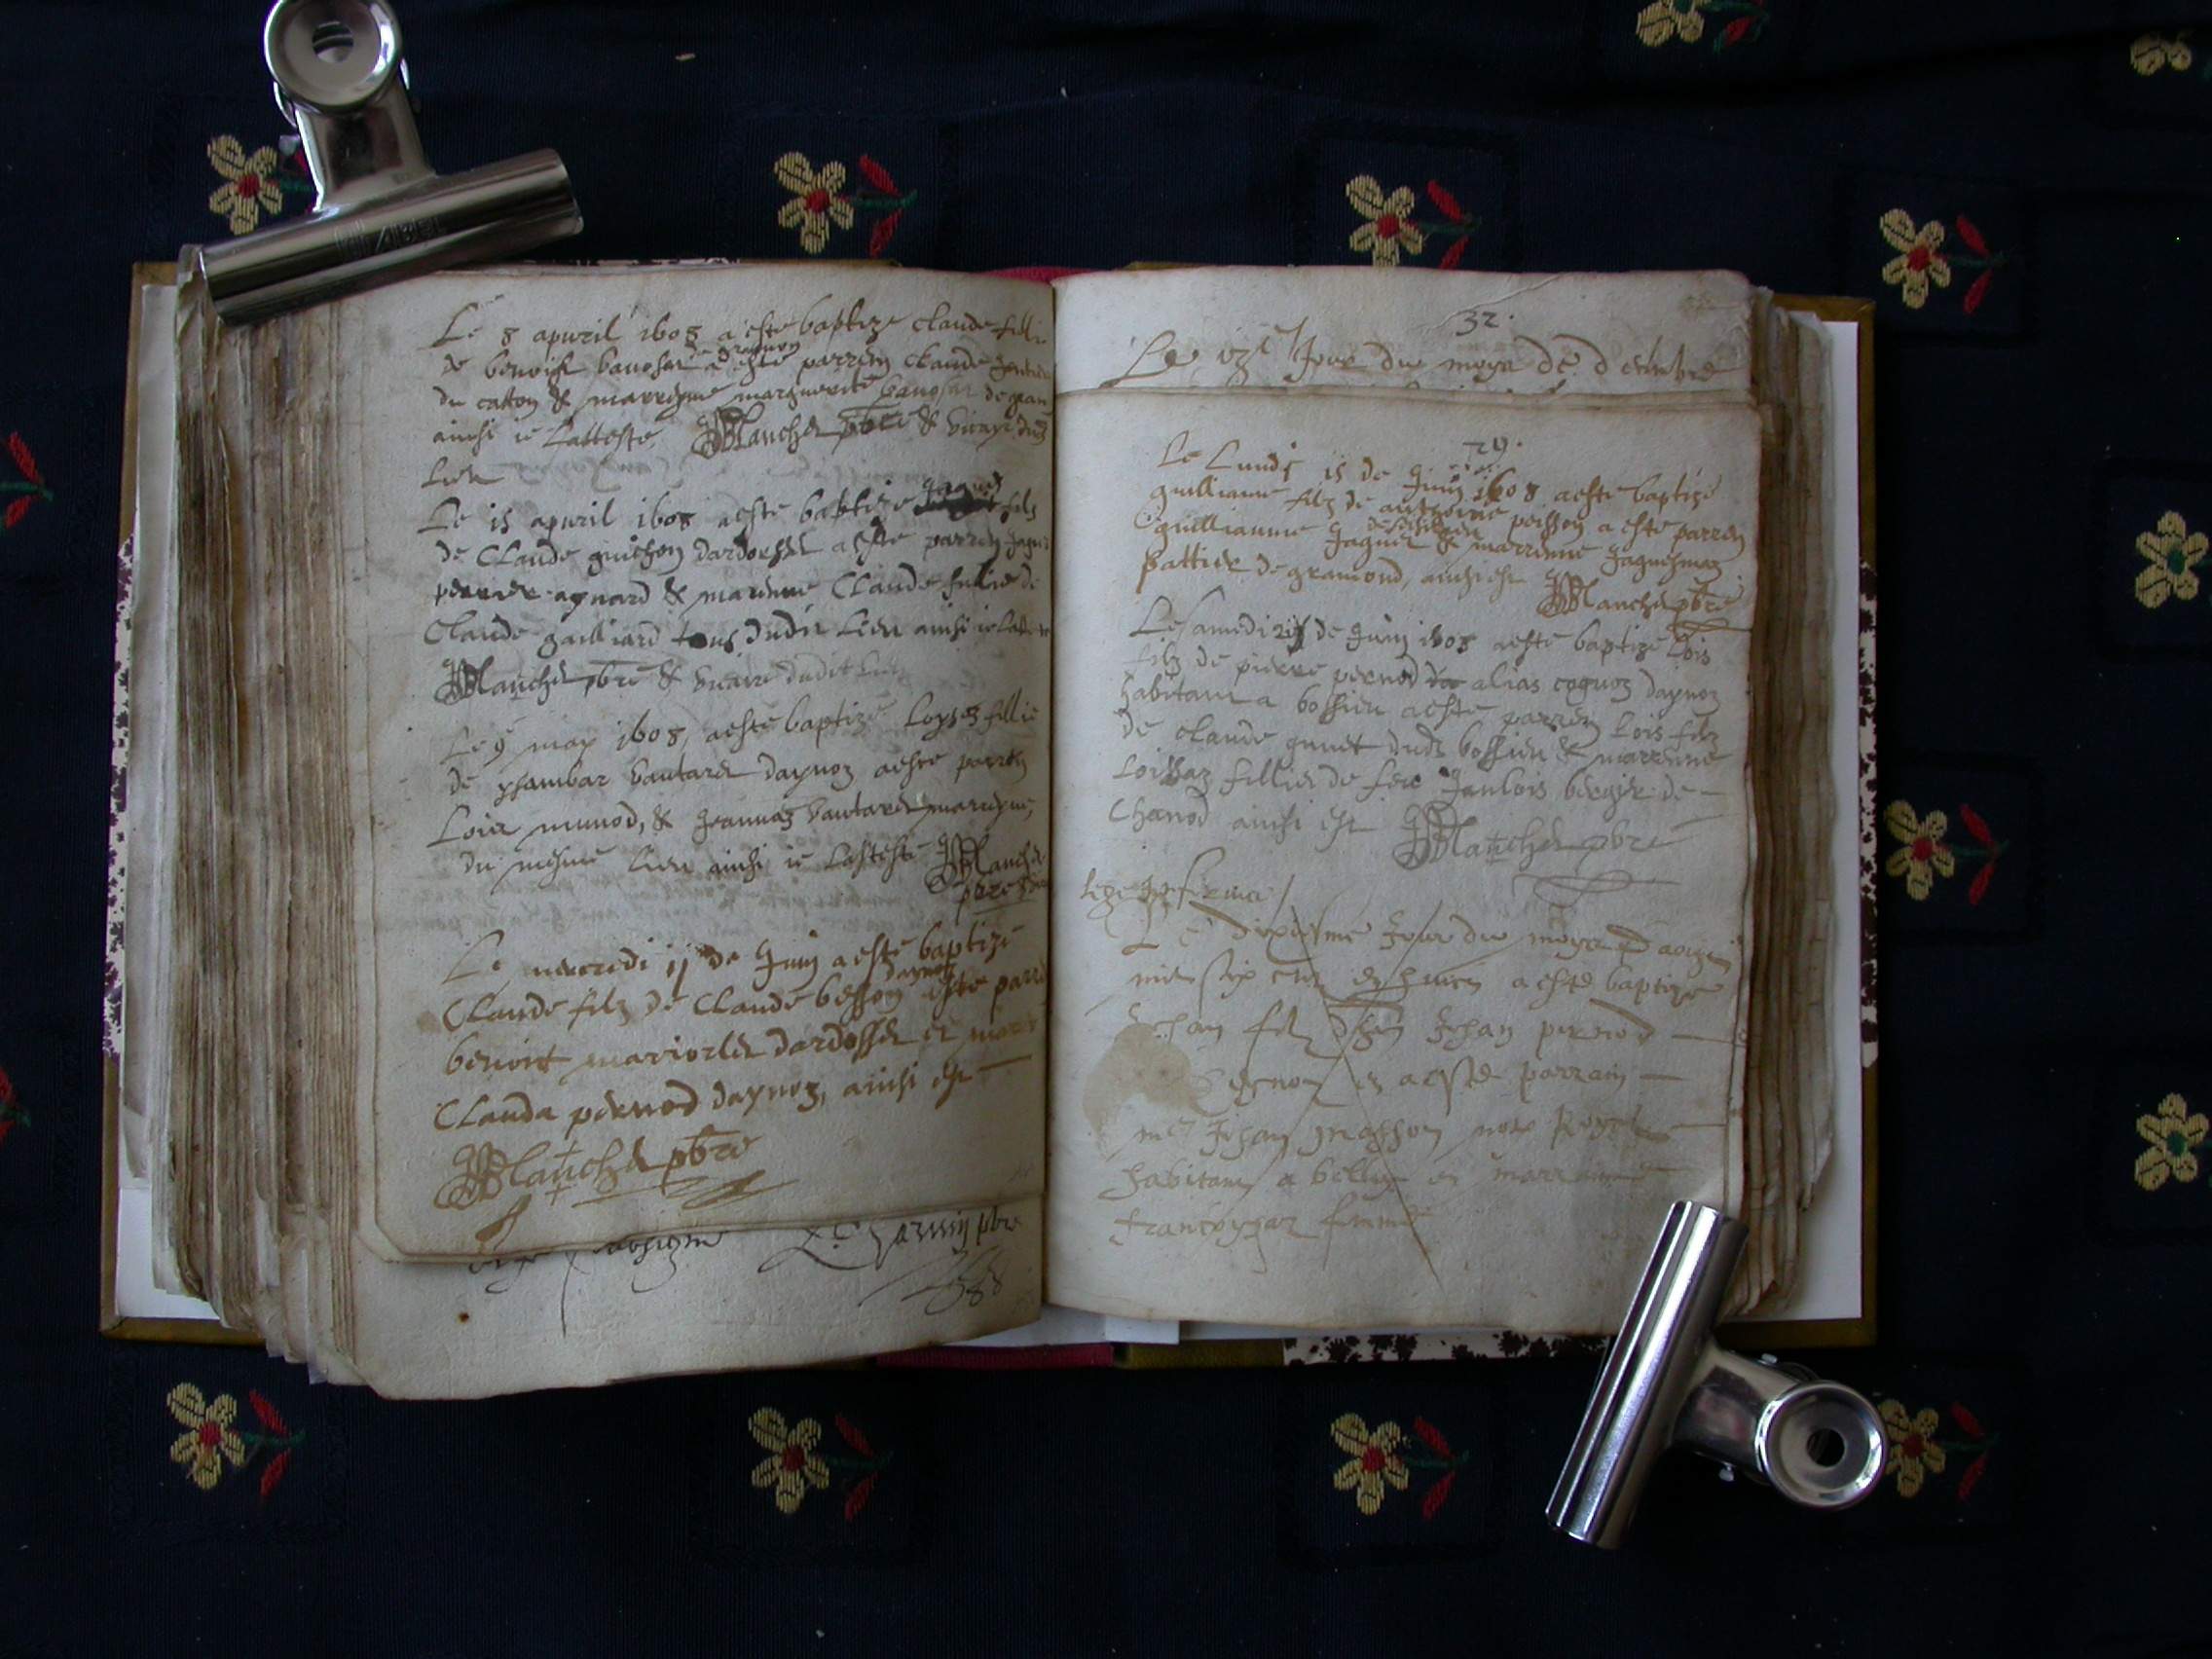 Le 8 apuril 1608 a este baptize claude filli
de benoist a este parrin Claude
du catton & marrenne marguerite de gran
ainsi ie Latteste, Blanchet pbre & vicayr dud
Lieu
Le 15 apuril 1608 a este baptize Jaques filz
de Claude guichon dardosset a este parrin Jaques
perrier aynard & marenne Claude fillie de
Claude gailliard tous dudit Lieu ainsi ie latteste
Blanchet pbre & vicaire dudit Lieu
Le 9 may 1608, a este baptize Loysez fillie
de vautaret daynoz a este parrin
Loix munod, & Jeannaz vautaret marrenne,
du mesme Lieu ainsi ie Latteste Blanchet
pbre
Le mercredi 11 de Juin a este baptize
Claude filz de Claude besson daynoz a este parri
benoist mariollet dardosset et marr
Clauda pernod daynoz, ainsi est
Blanchet pbre
pbre
32.
Le Jour du moys de decembre
29.
Le Lundi 15 de Juin 1608 a este baptize
guilliaume filz de anthoine poisson a este parrin
guilliaume Jaquet & marrenne
pattier de gramond, ainsi est Blanchet pbre
Le samedi de Juin 1608 a este baptize Lois
filz de pierre pernod alias coquoz daynoz
habitant a bossieu a este parrin Lois filz
de claude dud bossieu & marrenne
Loissaz fillie de feu Janlois bergier de
Chanod ainsi est Blanchet pbre
Le dixiesme Jour du moys Daougst
mil six cens et huict a este baptize
Jehan filz Jehan pernod
et a este parrain
me Jehan masson nore Royal
habitant a belley et marraine
francoysaz femme